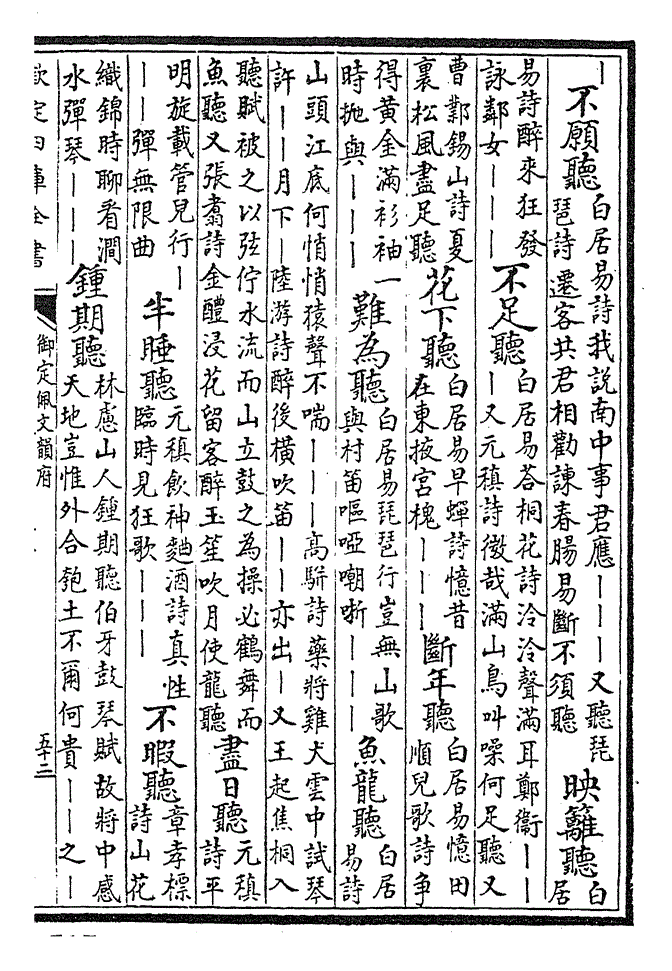 ｜
不願聽
白居易詩我説南中事君應｜｜｜又聽琵
琶詩遷客共君相勸諫春腸易斷不須聽
映籬聽
白
居
易詩醉來狂發
詠鄰女｜｜｜
不足聽
白居易荅桐花詩泠泠聲滿耳鄭衞｜｜
｜又元稹詩微哉滿山鳥叫噪何足聽又
曹鄴錫山詩夏
裏松風盡足聽
花下聽
白居易早蟬詩憶昔
在東掖宮槐｜｜｜
斷年聽
白居易憶田
順兒歌詩争
得黄金滿衫袖一
時抛與｜｜｜
難為聽
白居易琵琶行豈無山歌
與村笛嘔啞嘲哳｜｜｜
魚龍聽
白居
易詩
山頭江底何悄悄猿聲不喘｜｜｜高駢詩藥將雞犬雲中試琴
許｜｜月下｜陸游詩醉後横吹笛｜｜亦出｜又王起焦桐入
聽賦被之以弦佇水流而山立鼓之為操必鶴舞而
魚聽又張翥詩金醴浸花留客醉玉笙吹月使龍聽
盡日聽
元稹
詩平
明旋載管兒行｜
｜｜彈無限曲
半睡聽
元稹飲神麯酒詩真性
臨時見狂歌｜｜｜
不暇聽
章孝標
詩山花
織錦時聊看澗
水彈琴｜｜｜
鍾期聽
林慮山人鍾期聽伯牙鼓琴賦故將中感
天地豈惟外合匏土不爾何貴｜｜之｜
欽定四庫全書
御定佩文韻府
五十二